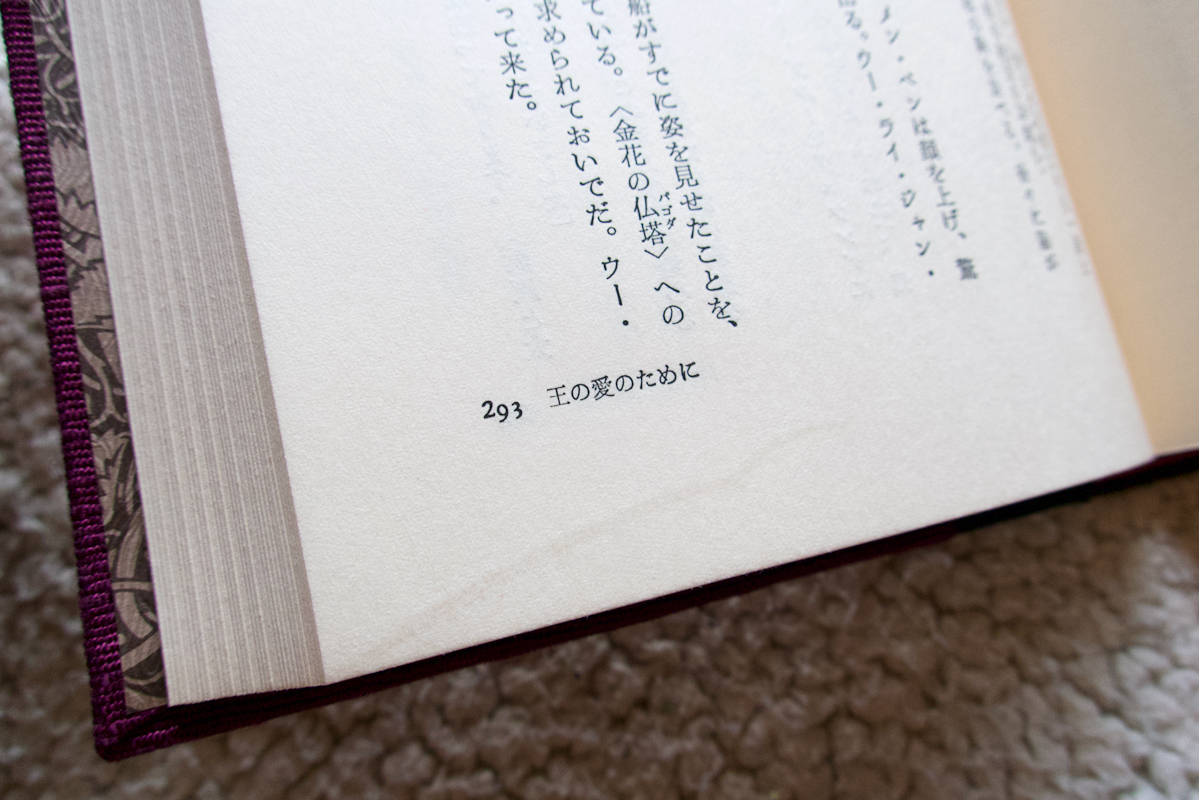 メン・ペンは顔を上げ、驚
る。ウー・ライ・ジャン・
船がすでに姿を見せたことを、
ている。〈金花の仏塔〉への
パゴダ
求められておいでだ。ウー・
って来た。
293 王の愛のために